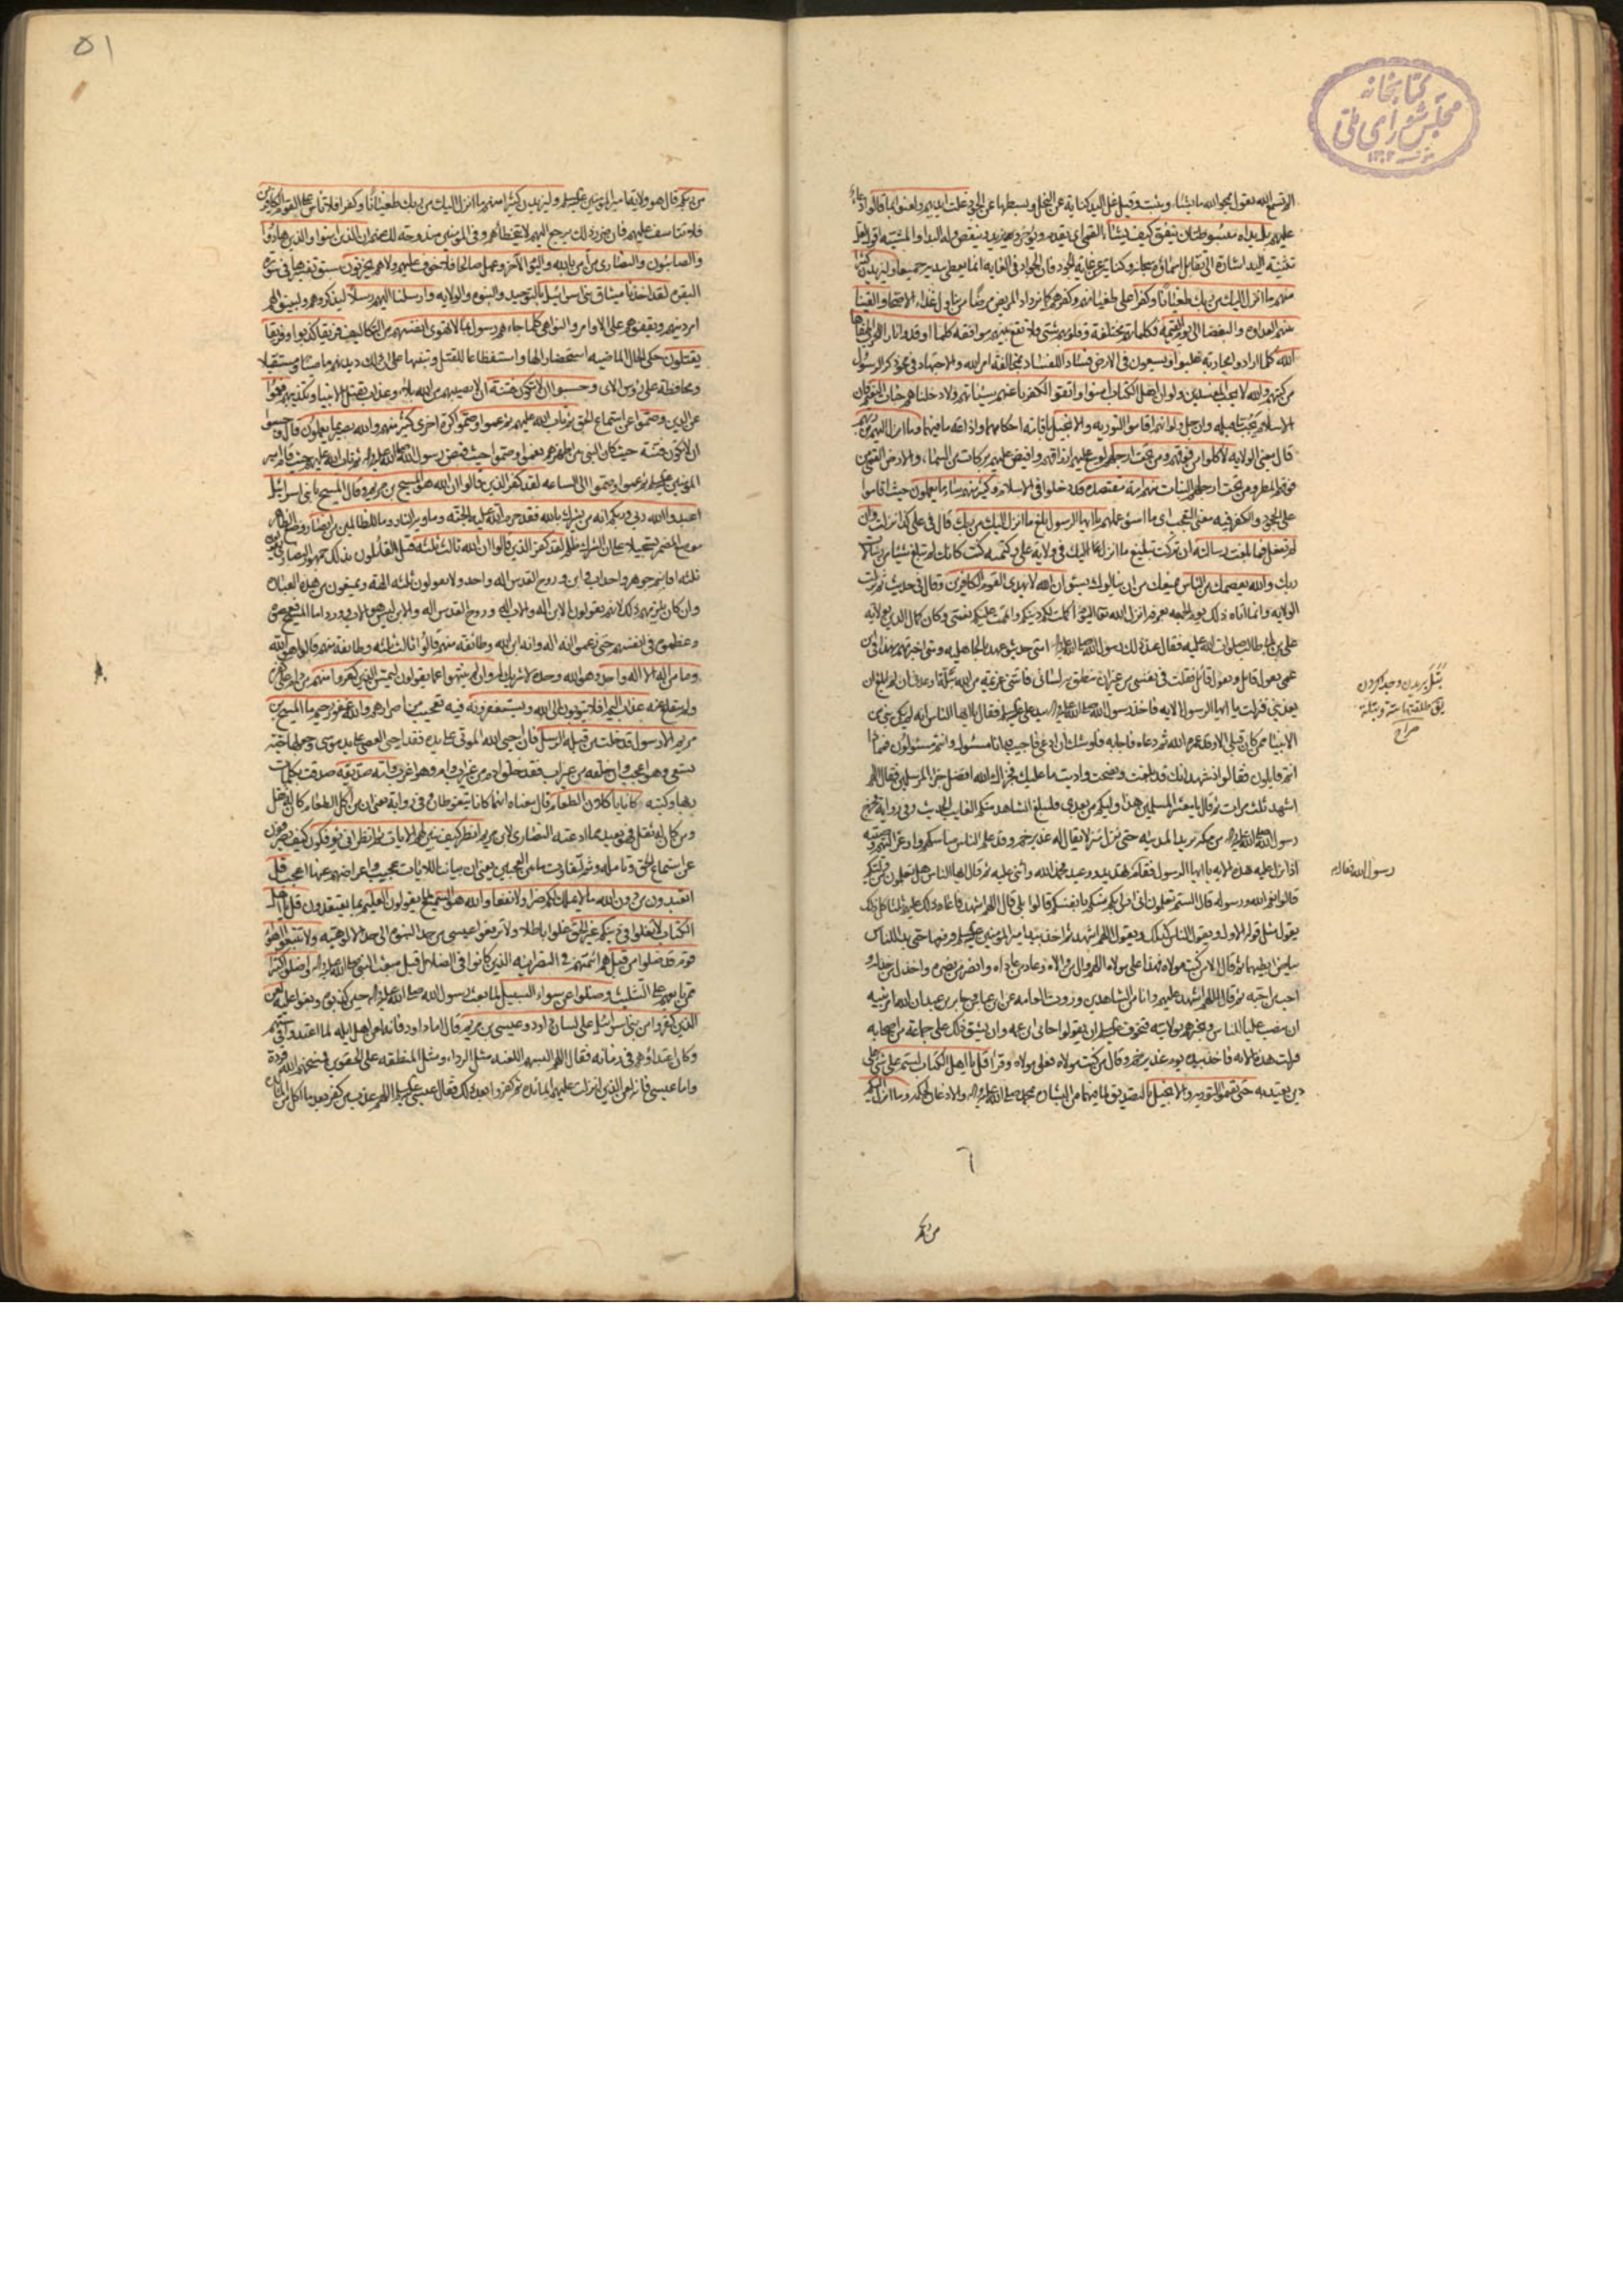 كتابخانه
مجلس شورای ملی
الم تسمع الله يقول يمحو الله ما يشاء ويثبت وقيل غل اليد كناية عن البخل وبسطها عن الجود غلت ايديهم ولعنوا بما قالوا دعاء
عليهم بل يداه مبسوطتان ينفق كيف يشاء القمي اي يقدم ويؤخر ويزيد وينقص وله البداء والمشيه
تثنيه اليد اشارة الى تقابل اسمائه وكناية عن غاية الجود فان الجواد في الغايه انما يعطي بيديه جميعا وليزيدن كثيرا
منهم ما انزل اليك من ربك طغيانا وكفرا على طغيانهم وكفرهم كما يزداد المريض مرضا من تناول غذاء الاصحاء والقينا
بينهم العداوه والبغضا الى يوم القيمه فكلماتهم مختلفة وقلوبهم شتى فلا تقع بينهم موافقه كلما اوقدوا نارا للحرب اطفاها
الله كلما ارادوا محاربه غلبوا ويسعون في الارض فسادا للفساد بمخالفة امر الله والاجتهاد في محو ذكر الرسول
من كتبهم والله لا يحب المفسدين ولو ان اهل الكتاب امنوا واتقوا لكفرنا عنهم سيئاتهم ولادخلناهم جنات النعيم فان
الاسلام يجب ما قبله وان جل ولو انهم اقاموا التوريه والانجيل باقامه احكامهما واذاعة ما فيهما وما انزل اليهم من ربهم
قال يعني الولايه لاكلوا من فوقهم ومن تحت ارجلهم لوسع عليهم ارزاقهم وافيض عليهم بركات من السماء والارض القمي من
فوقهم المطر ومن تحت ارجلهم النبات منهم امة مقتصده قد دخلوا في الاسلام وكثير منهم ساء ما يعملون حيث اقاموا
على الجحود والكفر وفيه معنى التعجب اي ما اسوء عملهم يا ايها الرسول بلغ ما انزل اليك من ربك قال في علي كذا نزلت وان
لم تفعل فما بلغت رسالته ان تركت تبليغ ما انزل اليك في ولاية علي وكتمته كنت كانك لم تبلغ شيئا من رسالات
ربك والله يعصمك من الناس يمنعك من ان ينالوك بسوء ان الله لا يهدي القوم الكافرين وقال في حديث ثم نزلت
الولايه وانما اتاه ذلك يوم الجمعه بعرفه انزل الله تعالى اليوم اكملت لكم دينكم واتممت عليكم نعمتي وكان كمال الدين بولايه
علي بن ابي طالب صلوات الله عليه فقال عند ذلك رسول الله صلى الله عليه واله امتي حديثو عهد بالجاهليه ومتى اخبرتهم بهذا في ابن
عمي يقول قائل ويقول قائل فقلت في نفسي من غير ان ينطق به لساني فاتتني عزيمة من الله بتلة اوعدني ان لم ابلغ ان
يعذبني فنزلت يا ايها الرسول الايه فاخذ رسول الله صلى الله عليه واله بيد علي عليه السلام فقال يا ايها الناس انه لم يكن نبي من
الانبياء ممن كان قبلي الا وقد عمره الله ثم دعاه فاجابه فاوشك ان ادعى فاجيب وانا مسئول وانتم مسئولون فماذا
انتم قايلون فقالوا نشهد انك قد بلغت ونصحت واديت ما عليك فجزاك الله افضل جزاء المرسلين فقال اللهم
اشهد ثلث مرات ثم قال يا معشر المسلمين هذا وليكم من بعدي فليبلغ الشاهد منكم الغايب الحديث وفي رواية خرج
رسول الله صلى الله عليه واله من مكه يريد المدينه حتى نزل منزلا يقال له غدير خم وقد علم الناس مناسكهم واوعز اليهم وصيته
اذ انزل عليه هذه الايه يا ايها الرسول فقام بعد ان حمد الله واثنى عليه ثم قال ايها الناس هل تعلمون من وليكم
قالوا نعم الله ورسوله قال الستم تعلمون اني اولى بكم منكم بانفسكم قالوا بلى قال اللهم اشهد فاعاد ذلك عليهم ثلثا كل ذلك
يقول مثل قوله الاول ويقول الناس كذلك ويقول اللهم اشهد ثم اخذ بيد امير المؤمنين عليه السلام فرفعها حتى بدا للناس
بياض ابطيهما ثم قال الا من كنت مولاه فهذا علي مولاه اللهم وال من والاه وعاد من عاداه وانصر من نصره واخذل من خذله و
احب من احبه ثم قال اللهم اشهد عليهم وانا من الشاهدين وروت العامه عن ابن عباس وجابر بن عبد الله ان الله امر نبيه
ان ينصب عليا للناس ويخبرهم بولايته فتخوف عليه السلام ان يقولوا حابى ابن عمه وان يشق ذلك على جماعة من اصحابه
فنزلت هذه الايه فاخذ بيده يوم غدير خم وقال من كنت مولاه فعلي مولاه وقرا قل يا اهل الكتاب لستم على شيء على
دين يعتد به حتى تقيموا التوريه والانجيل بالتصديق لما فيهما من البشاره بمحمد صلى الله عليه واله والاذعان لحكمه وما انزل اليكم
بتل بريدن وجدا كردن
يق طلقها بتة وبتلة
صراح
رسول الله فقال
٦
من ربكم
٥١
من ربكم قال هو ولاية امير المؤمنين عليه السلام وليزيدن كثيرا منهم ما انزل اليك من ربك طغيانا وكفرا فلا تاس على القوم الكافرين
فلا تتاسف عليهم فان ضرر ذلك يرجع اليهم لا يتخطاهم وفي المؤمنين مندوحة لك عنهم ان الذين امنوا والذين هادوا
والصابئون والنصارى من امن بالله واليوم الاخر وعمل صالحا فلا خوف عليهم ولا هم يحزنون سبق تفسيرها في سورة
البقره لقد اخذنا ميثاق بني اسرائيل بالتوحيد والنبوه والولايه وارسلنا اليهم رسلا ليذكروهم وليبينوا لهم
امر دينهم ويقفوهم على الاوامر والنواهي كلما جاءهم رسول بما لا تهوى انفسهم من التكاليف فريقا كذبوا وفريقا
يقتلون حكى الحال الماضيه استحضارا لها واستفظاعا للقتل وتنبيها على ان ذلك ديدنهم ماضيا ومستقبلا
ومحافظة على رؤس الاي وحسبوا الا تكون فتنة ان لا يصيبهم من الله بلاء وعذاب بقتل الانبياء وتكذيبهم فعموا
عن الدين وصموا عن استماع الحق ثم تاب الله عليهم ثم عموا وصموا كرة اخرى كثير منهم والله بصير بما يعملون قال وحسبوا
ان لا تكون فتنة حيث كان النبي بين اظهرهم فعموا وصموا حيث قبض رسول الله صلى الله عليه واله ثم تاب الله عليهم حيث قام امير
المؤمنين عليه السلام ثم عموا وصموا الى الساعه لقد كفر الذين قالوا ان الله هو المسيح بن مريم وقال المسيح يا بني اسرائيل
اعبدوا الله ربي وربكم انه من يشرك بالله فقد حرم الله عليه الجنه وماويه النار وما للظالمين من انصار وضع الظاهر
موضع المضمر تسجيلا على ان الشرك ظلم لقد كفر الذين قالوا ان الله ثالث ثلثه قيل القائلون بذلك جمهور النصارى يقولون
ثلثه اقانيم جوهر واحد اب وابن وروح القدس اله واحد ولا يقولون ثلثه الهة ويمنعون من هذه العباره
وان كان يلزمهم ذلك لانهم يقولون الابن اله والاب اله وروح القدس اله والابن ليس هو الاب
وعظموه في انفسهم حتى زعموا انه اله وانه ابن الله وطائفة منهم قالوا ثالث ثلثه وطايفة منهم قالوا هو الله
وما من اله الا اله واحد وهو الله وحده لا شريك له وان لم ينتهوا عما يقولون ليمسن الذين كفروا منهم من دام على كفره
ولم ينقلع عنه عذاب اليم افلا يتوبون الى الله ويستغفرونه فيه تعجيب من اصرارهم والله غفور رحيم ما المسيح بن
مريم الا رسول قد خلت من قبله الرسل فان احيى الله الموتى على يده فقد احيى العصا على يد موسى وجعلها حية
تسعى وهو اعجب وان خلقه من غير اب فقد خلق ادم من غير اب وام وهو اغرب وامه صديقة صدقت بكلمات
ربها وكتبه كانا ياكلان الطعام قال معناه انهما كانا يتغوطان وفي رواية يعني ان من اكل الطعام كان له ثفل
ومن كان له ثفل فهو بعيد مما ادعته النصارى لابن مريم انظر كيف نبين لهم الايات ثم انظر انى يؤفكون كيف يصرفون
عن استماع الحق وتامله وثم لتفاوت ما بين العجبين يعني ان بياننا للايات عجيب واعراضهم عنها اعجب قل
اتعبدون من دون الله ما لا يملك لكم ضرا ولا نفعا والله هو السميع لما يقولون العليم بما يعتقدون قل يا اهل
الكتاب لا تغلوا في دينكم غير الحق غلوا باطلا ولا ترفعوا عيسى من حد النبوه الى حد الالوهيه ولا تتبعوا اهواء
قوم قد ضلوا من قبل هم ائمتهم في النصرانيه الذين كانوا في الضلال قبل مبعث النبي صلى الله عليه واله واضلوا كثيرا
ممن تابعهم على التثليث وضلوا عن سواء السبيل لما بعث رسول الله صلى الله عليه واله حين كذبوه وبغوا عليه لعن
الذين كفروا من بني اسرائيل على لسان داود وعيسى بن مريم قال اما داود فانه لعن اهل ايله لما اعتدوا في سبتهم
وكان اعتداؤهم في زمانه فقال اللهم البسهم اللعنه مثل الرداء ومثل المنطقه على الحقوين فمسخهم الله قردة
واما عيسى فانه لعن الذين انزلت عليهم المائده ثم كفروا بعد ذلك فقال عيسى عليه السلام اللهم عذب من كفر بعد ما اكل من المائده